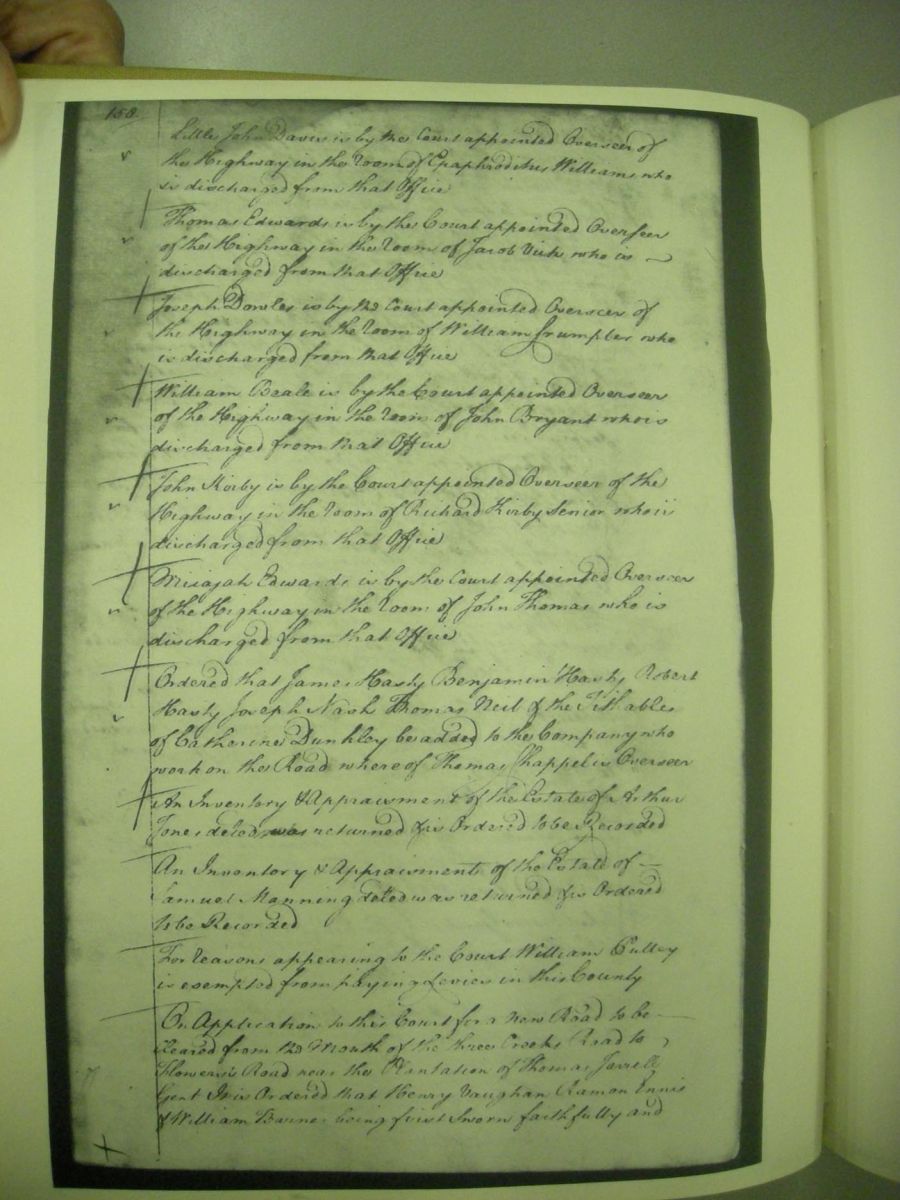 158.
Little John Davis is by the Court appointed Overseer of
the Highway in the room of Epaphroditus Williams who
is discharged from that Office
Thomas Edwards is by the Court appointed Overseer
of the Highway in the room of Jacob Vick who is
discharged from that Office
Joseph Dowles is by the Court appointed Overseer of
the Highway in the room of William Crumpler who
is discharged from that Office
William Beale is by the Court appointed Overseer
of the Highway in the room of John Bryant who is
discharged from that Office
John Kirby is by the Court appointed Overseer of the
Highway in the room of Richard Kirby Senior who is
discharged from that Office
Micajah Edwards is by the Court appointed Overseer
of the Highway in the room of John Thomas who is
discharged from that Office
Ordered that James Hasty Benjamin Hasty Robert
Hasty Joseph Nash Thomas Neil & the Tithables
of Catherine Dunkley be added to the Company who
work on the Road whereof Thomas Chappel is Overseer
An Inventory & Appraisment of the Estate of Arthur
Jones deced was returned & is Ordered to be Recorded
An Inventory & Appraisment of the Estate of
Samuel Manning deced was returned & is Ordered
to be Recorded
For reasons appearing to the Court William Pulley
is exempted from paying Levies in this County
On Application to this Court for a new Road to be
cleared from the Mouth of the three Creeks Road to
Flowers's Road near the Plantation of Thomas Jarrell
Gent It is Ordered that Henry Vaughan Ramon Ennis
& William Barnes being first Sworn faithfully and